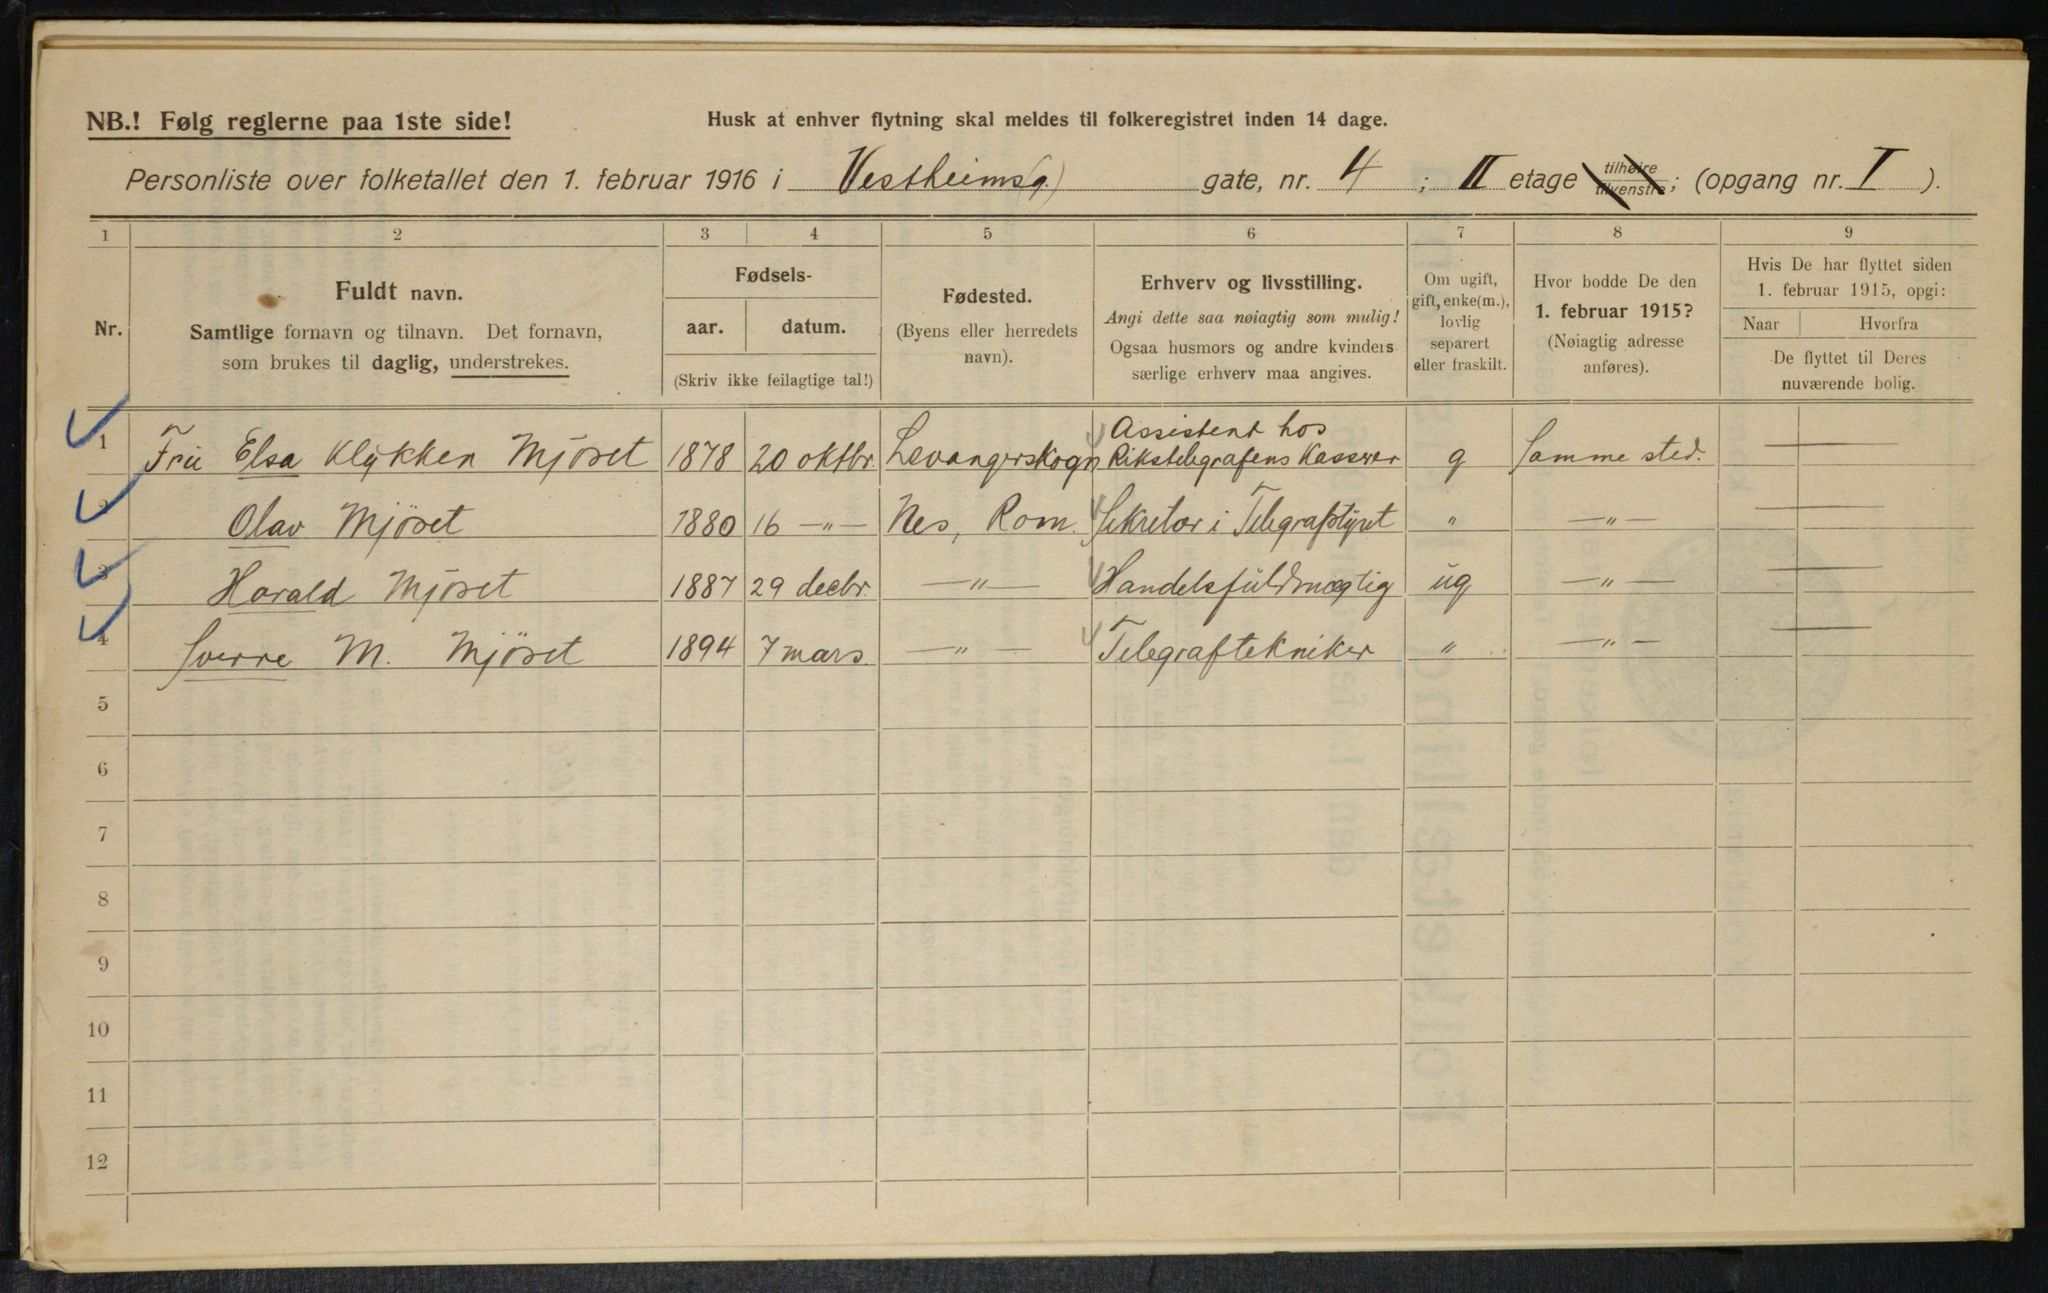 NB.! Følg reglerne paa 1ste side!
Husk at enhver flytning skal meldes til folkeregistret inden 14 dage.
Personliste over folketallet den 1. februar 1916 i Vestheimsg.) gate, nr. 4 ; II etage tilhøire tilvenstre; (opgang nr. I ).
1 2 3 4 5 6 7 8 9
Nr.
Fuldt navn.
Samtlige fornavn og tilnavn. Det fornavn,
som brukes til daglig, understrekes.
Fødsels-
aar. datum.
(Skriv ikke feilagtige tal!)
Fødested.
(Byens eller herredets
navn).
Erhverv og livsstilling.
Angi dette saa nøiagtig som mulig!
Ogsaa husmors og andre kvinders
særlige erhverv maa angives.
Om ugift,
gift, enke(m.),
lovlig
separert
eller fraskilt.
Hvor bodde De den
1. februar 1915?
(Nøiagtig adresse
anføres).
Hvis De har flyttet siden
1. februar 1915, opgi:
Naar Hvorfra
De flyttet til Deres
nuværende bolig.
1 Fru Elsa Klykken Mjöset 1878 20 oktbr Levangerskogn Assistent hos Rikstelegrafens Kasserer g Samme sted. —
2 Olav Mjöset 1880 16 —"— Nes, Rom. Sekretær i Telegrafstyret " —"— —
3 Harald Mjöset 1887 29 decbr. —"— Handelsfuldmægtig ug —"— —
4 Sverre M. Mjöset 1894 7 mars —"— Telegraftekniker " —"— —
5
6
7
8
9
10
11
12